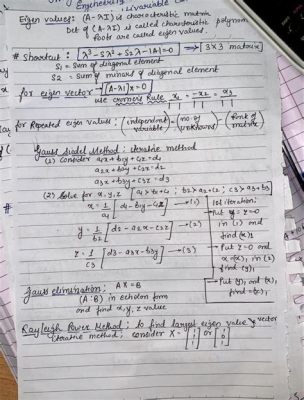 Engineering
Eigen values: (A-λI) is characteristic matrix
Det of (A-λI) is called characteristic polynom
Roots are called eigen values.
# Shortcut: λ³-S₁λ²+S₂λ-|A|=0 → 3×3 matrix
S₁ = Sum of diagonal element
S₂ = Sum of minors of diagonal element
for eigen vector → [A-λI]x=0
use Cramers Rule x₁ = -x₂ = x₃
for Repeated eigen values: (independent variable) = (no of unknowns) - Rank of matrix
Gauss Siedel Method: iterative method
(1) Consider a₁x+b₁y+c₁z=d₁
a₂x+b₂y+c₂z=d₂
a₃x+b₃y+c₃z=d₃
(2) Solve for x,y,z | a₁>b₁+c₁; b₂>a₂+c₂; c₃>a₃+b₃
x = 1/a₁ [d₁-b₁y-c₁z] → (1)
y = 1/b₂ [d₂-a₂x-c₂z] → (2)
z = 1/c₃ [d₃-a₃x-b₃y] → (3)
1st iteration:
Put y=z=0
in (1) and
find (x)₁
Put z=0 and
x=(x)₁ in (2)
find (y)₁
Put (y)₁ and (x)₁
find = (z)₁
Gauss elimination: AX=B
(A:B) in echelon form
and find x, y, z value
Rayleigh Power Method: to find largest eigen value & vector
iterative method; consider X = [1 1 1] or [1 0 0]